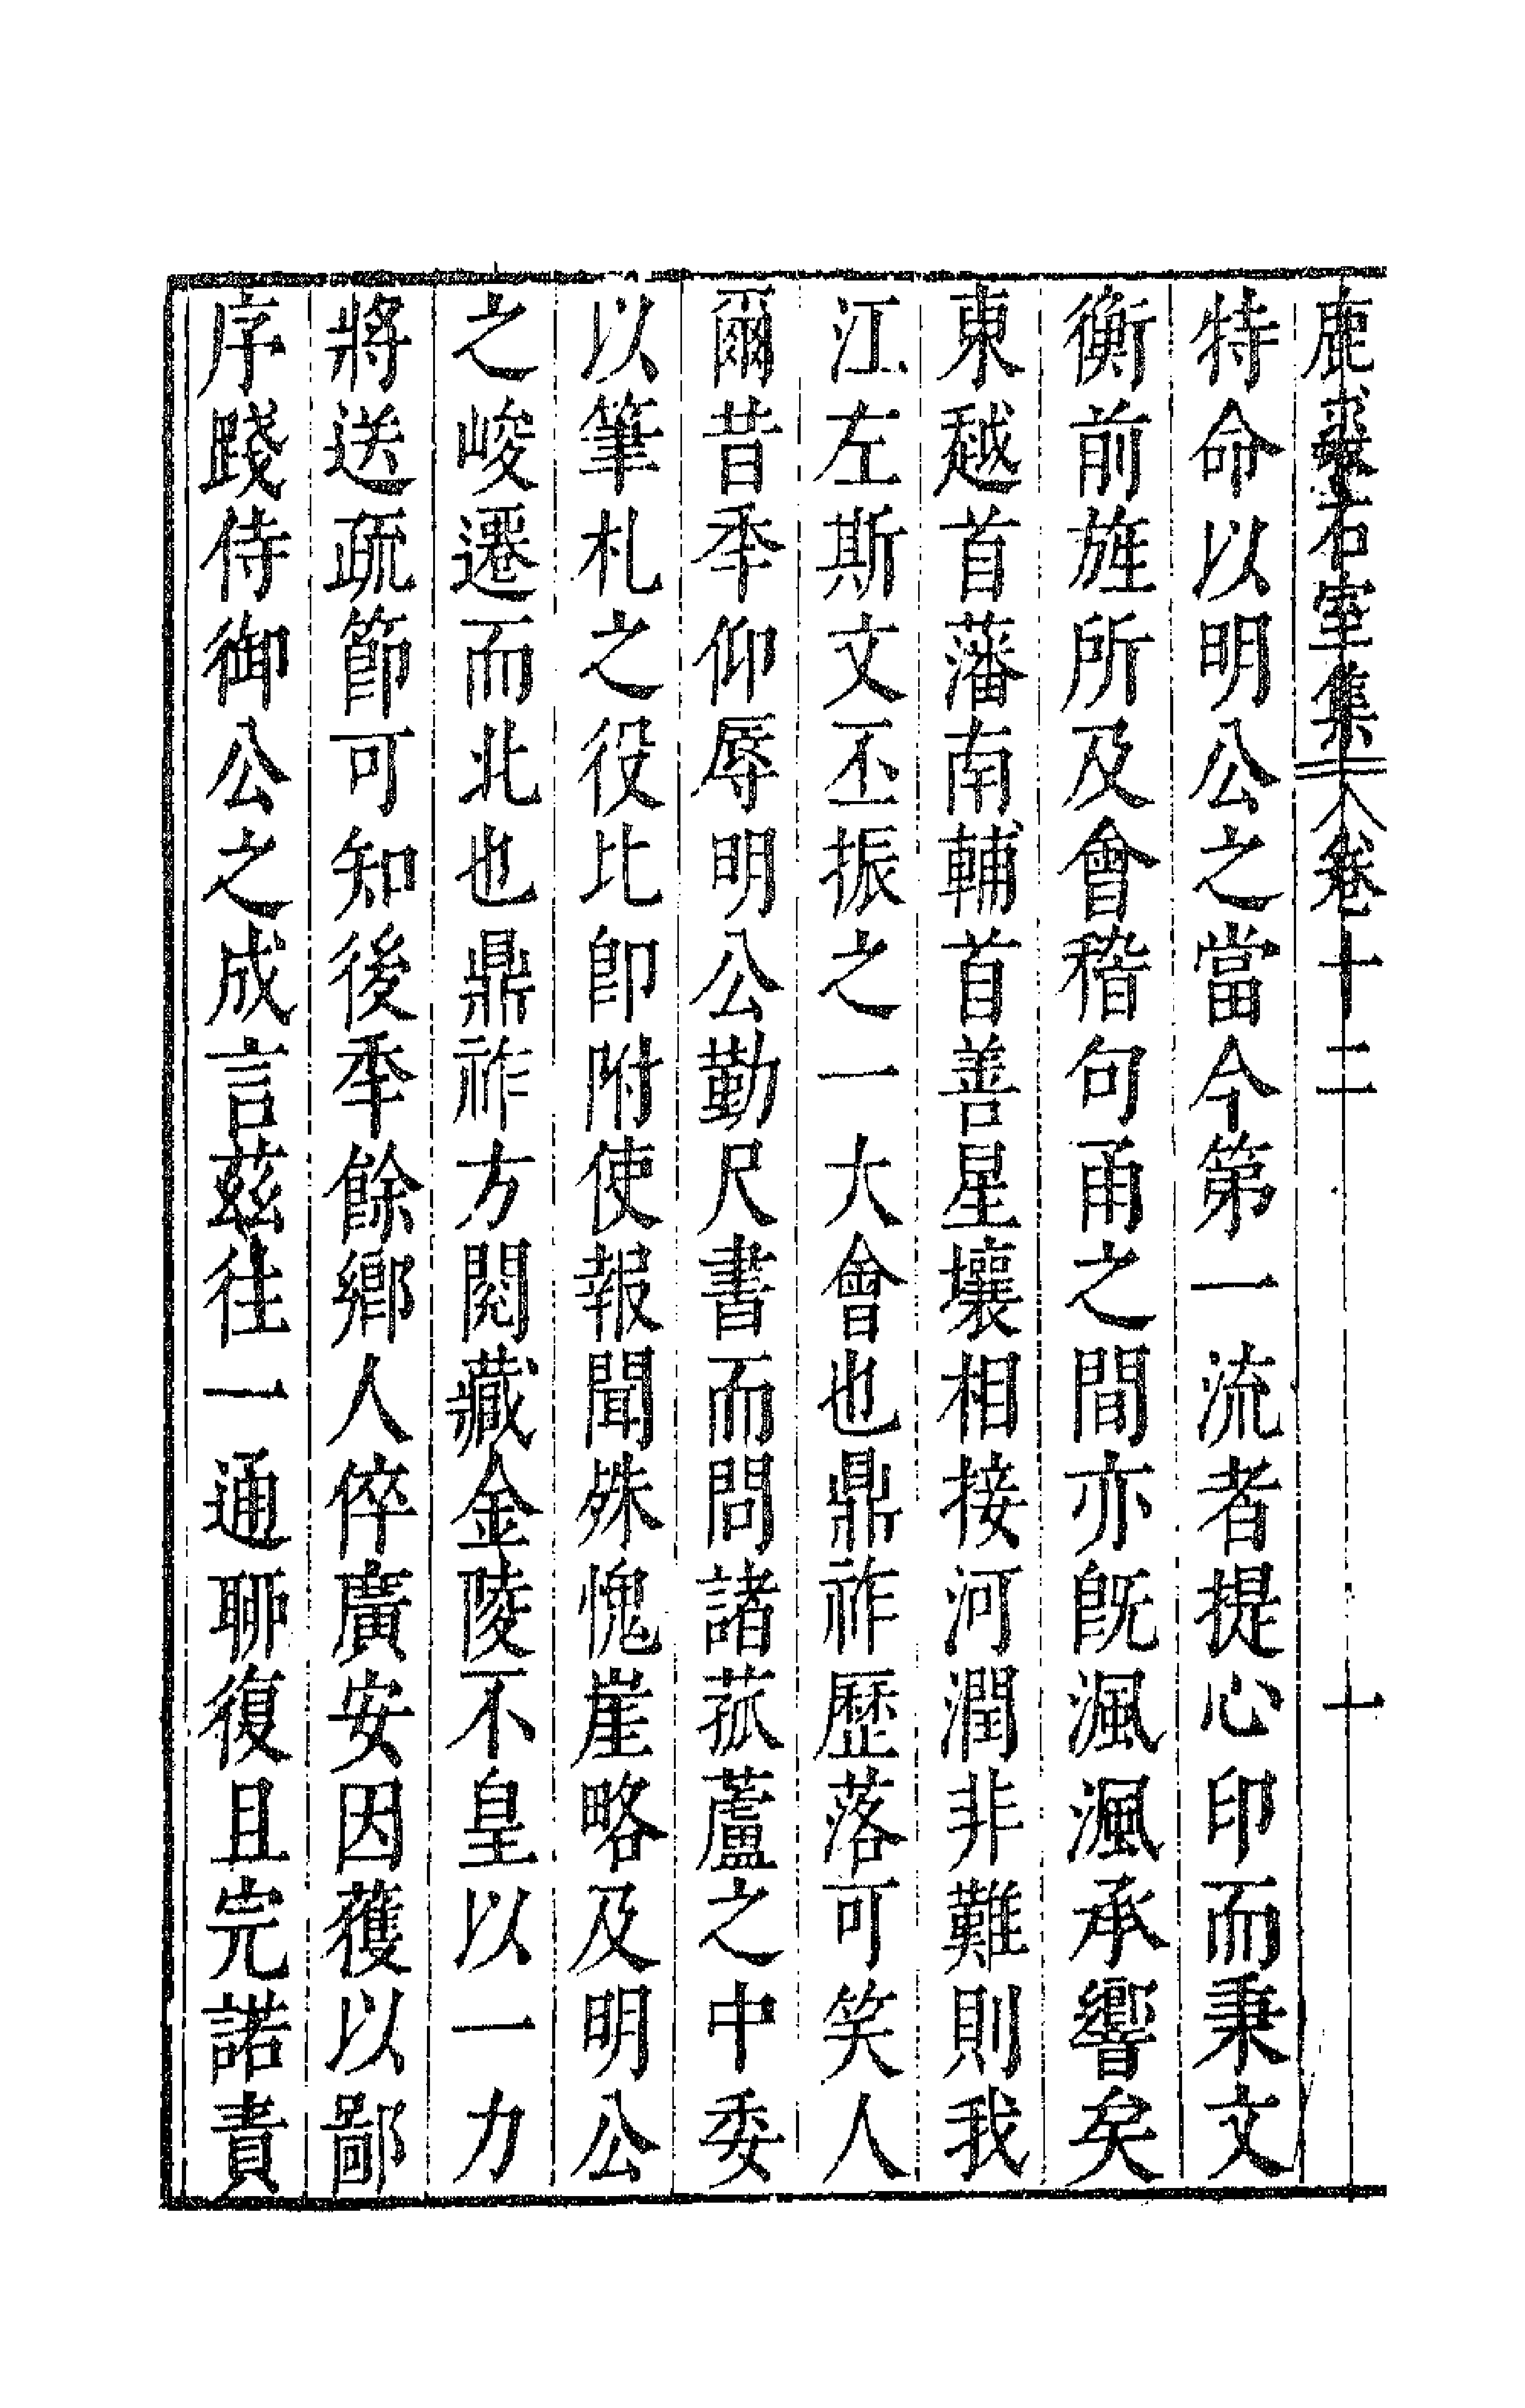 鹿裘石室集 卷十二 十
特命以明公之當今第一流者提心印而秉文
衡前旌所及會稽句甬之間亦旣渢渢承響矣
東越首藩南輔首善星壤相接河潤非難則我
江左斯文丕振之一大會也鼎祚歷落可笑人
爾昔秊仰辱明公勤尺書而問諸菰蘆之中委
以筆札之役比卽附使報聞殊愧崖略及明公
之峻遷而北也鼎祚方閱藏金陵不皇以一力
將送疏節可知後秊餘鄉人倅廣安因獲以鄙
序踐侍御公之成言茲往一通聊復且完諾責